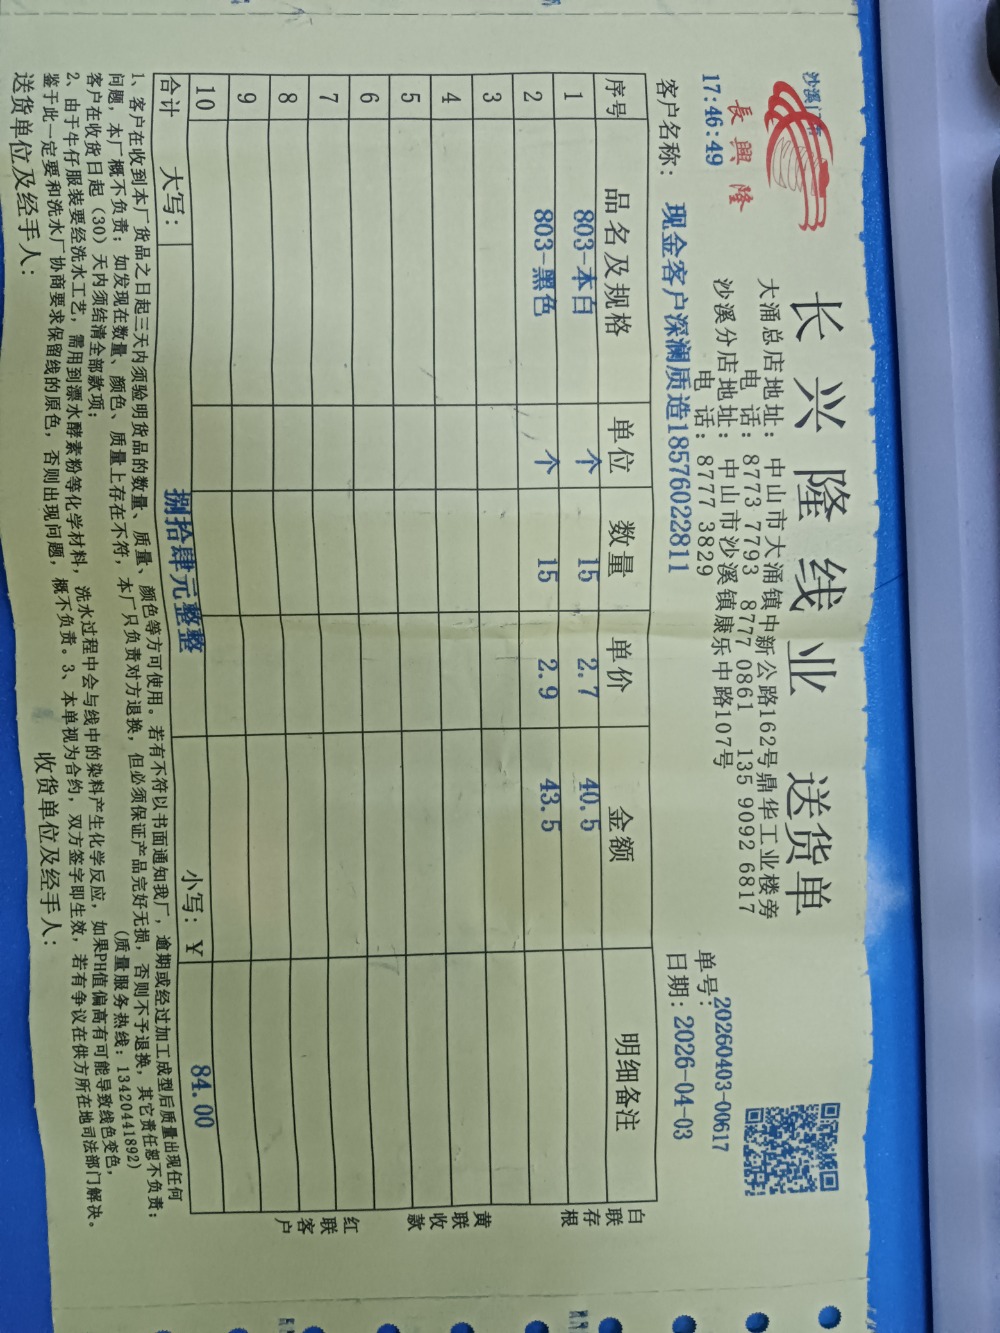 長興隆
沙溪门市
17:46:49
长兴隆线业 送货单
大涌总店地址：中山市大涌镇中新公路162号鼎华工业楼旁
电 话：8773 7793 8777 0861 135 9092 6817
沙溪分店地址：中山市沙溪镇康乐中路107号
电 话：8777 3829
单号：20260403-00617
客户名称：现金客户深澜质造18576022811
日期：2026-04-03
序号 品名及规格 单位 数量 单价 金额 明细备注
1 803-本白 个 15 2.7 40.5
2 803-黑色 个 15 2.9 43.5
3
4
5
6
7
8
9
10
合计 大写： 捌拾肆元整整 小写：￥ 84.00
白联存根
黄联收款
红联客户
1、客户在收到本厂货品之日起三天内须验明货品的数量、质量、颜色等方可使用。若有不符以书面通知我厂，逾期或经过加工成型后质量出现任何
问题，本厂概不负责；如发现在数量、颜色、质量上存在不符，本厂只负责对方退换，但必须保证产品完好无损，否则不予退换，其它责任恕不负责；
客户在收货日起（30）天内须结清全部款项； (质量服务热线：13420441892)
2、由于牛仔服装要经洗水工艺，需用到漂水酵素粉等化学材料，洗水过程中会与线中的染料产生化学反应，如果PH值偏高有可能导致线色变色，
鉴于此一定要和洗水厂协商要求保留线的原色，否则出现问题，概不负责。3、本单视为合约，双方签字即生效，若有争议在供方所在地司法部门解决。
送货单位及经手人： 收货单位及经手人：